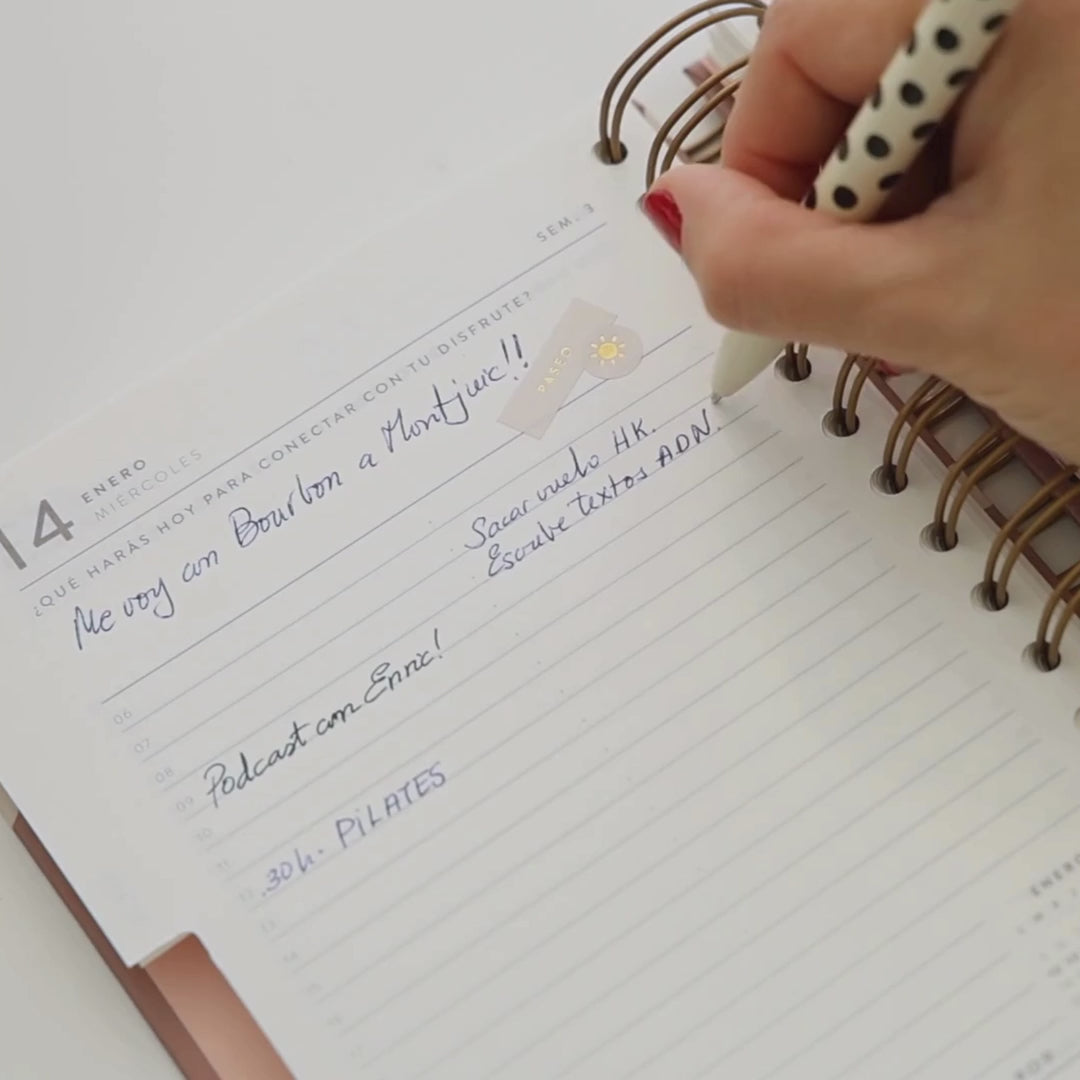 SEM. 3
14 ENERO
MIÉRCOLES
¿QUÉ HARÁS HOY PARA CONECTAR CON TU DISFRUTE?
Me voy con Bourbon a Montjuic!!
PASEO
Sacar vuelo HK.
Escribe textos ADN.
06
07
08
09 Podcast con Enric!
10
11
12 .30h. PiLATES
13
14
ENERO